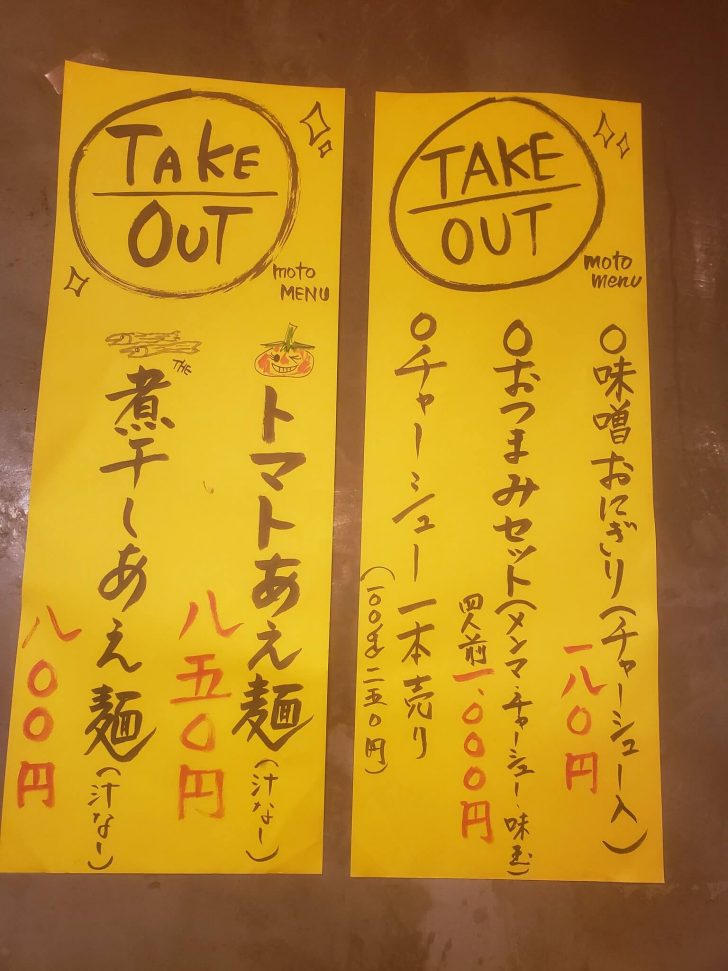 TAKE
OUT
moto
MENU
トマトあえ麺(汁なし)
八五〇円
THE
煮干しあえ麺(汁なし)
八〇〇円
TAKE
OUT
moto
menu
○味噌おにぎり(チャーシュー入)
一八〇円
○おつまみセット(メンマ・チャーシュー・味玉)
四人前一、〇〇〇円
○チャーシュー一本売り
(一〇〇g二五〇円)